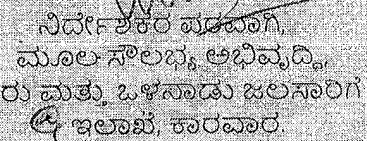 ನಿರ್ದೇಶಕರ ಪರವಾಗಿ,
ಮೂಲ ಸೌಲಭ್ಯ ಅಭಿವೃದ್ಧಿ,
ರು ಮತ್ತು ಒಳನಾಡು ಜಲಸಾರಿಗೆ
ಇಲಾಖೆ, ಕಾರವಾರ.